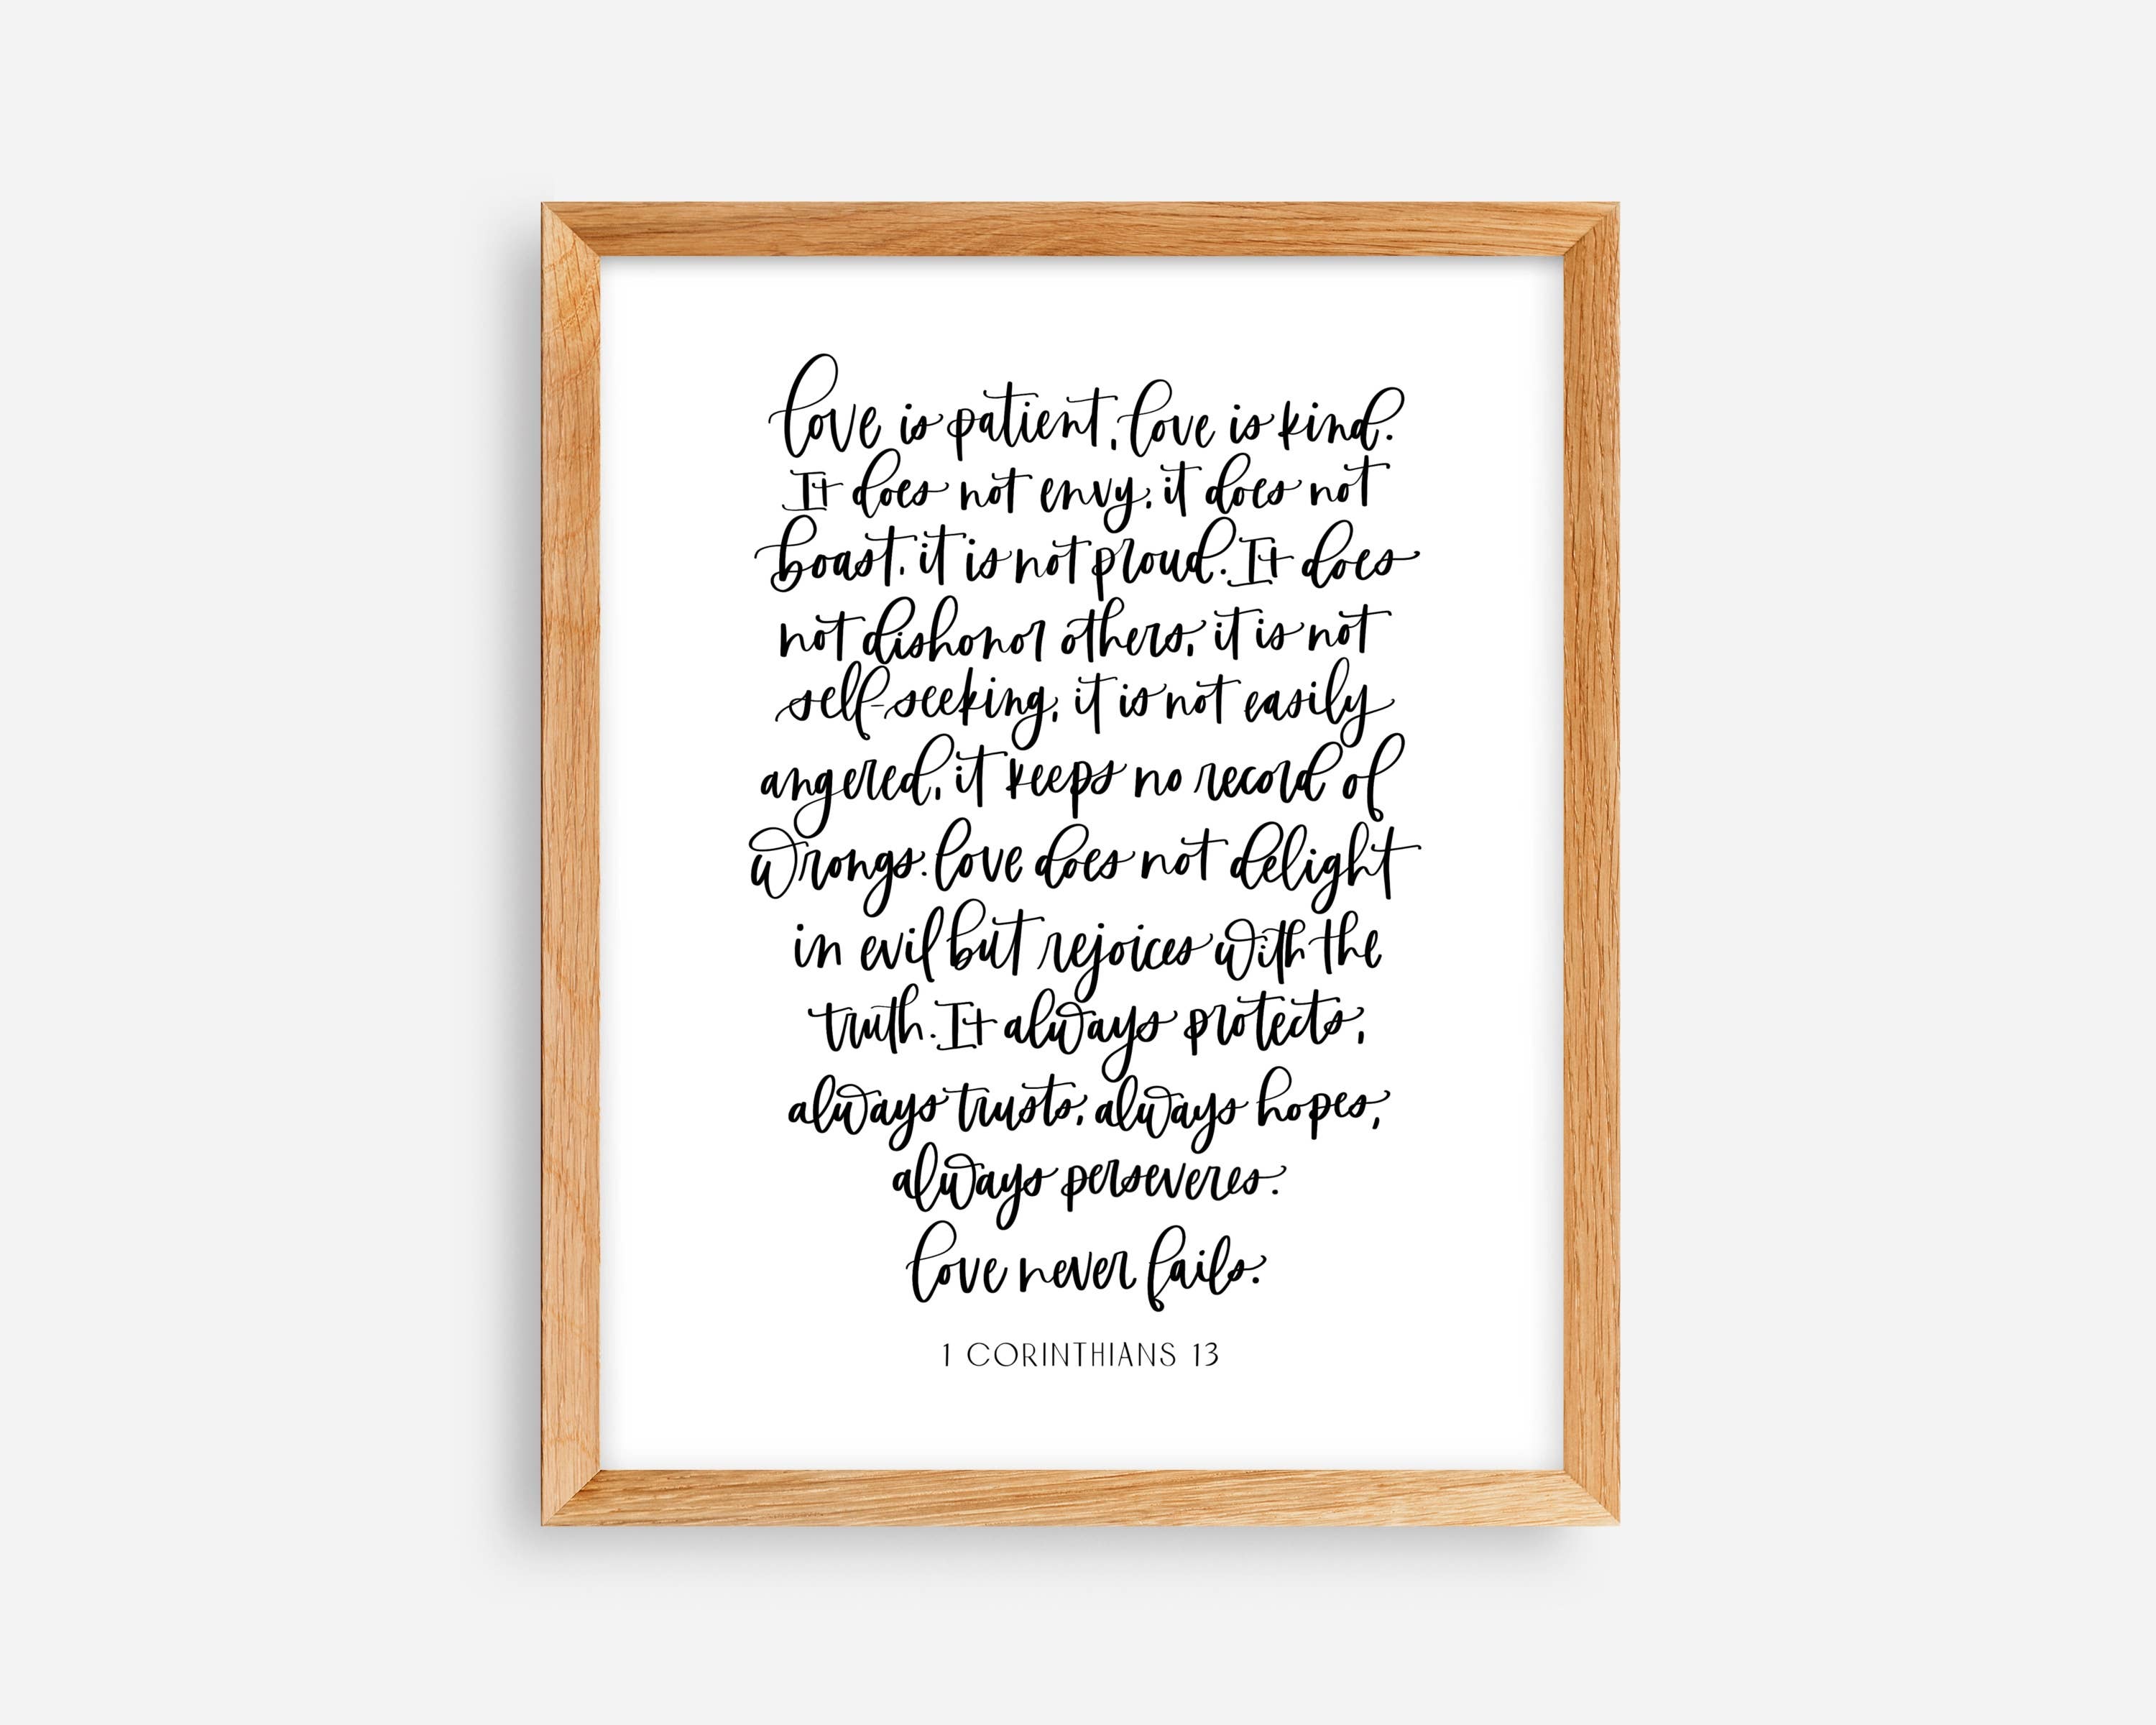 love is patient, love is kind.
It does not envy, it does not
boast, it is not proud. It does
not dishonor others, it is not
self-seeking, it is not easily
angered, it keeps no record of
wrongs. love does not delight
in evil but rejoices with the
truth. It always protects,
always trusts, always hopes,
always perseveres.
love never fails.
1 CORINTHIANS 13